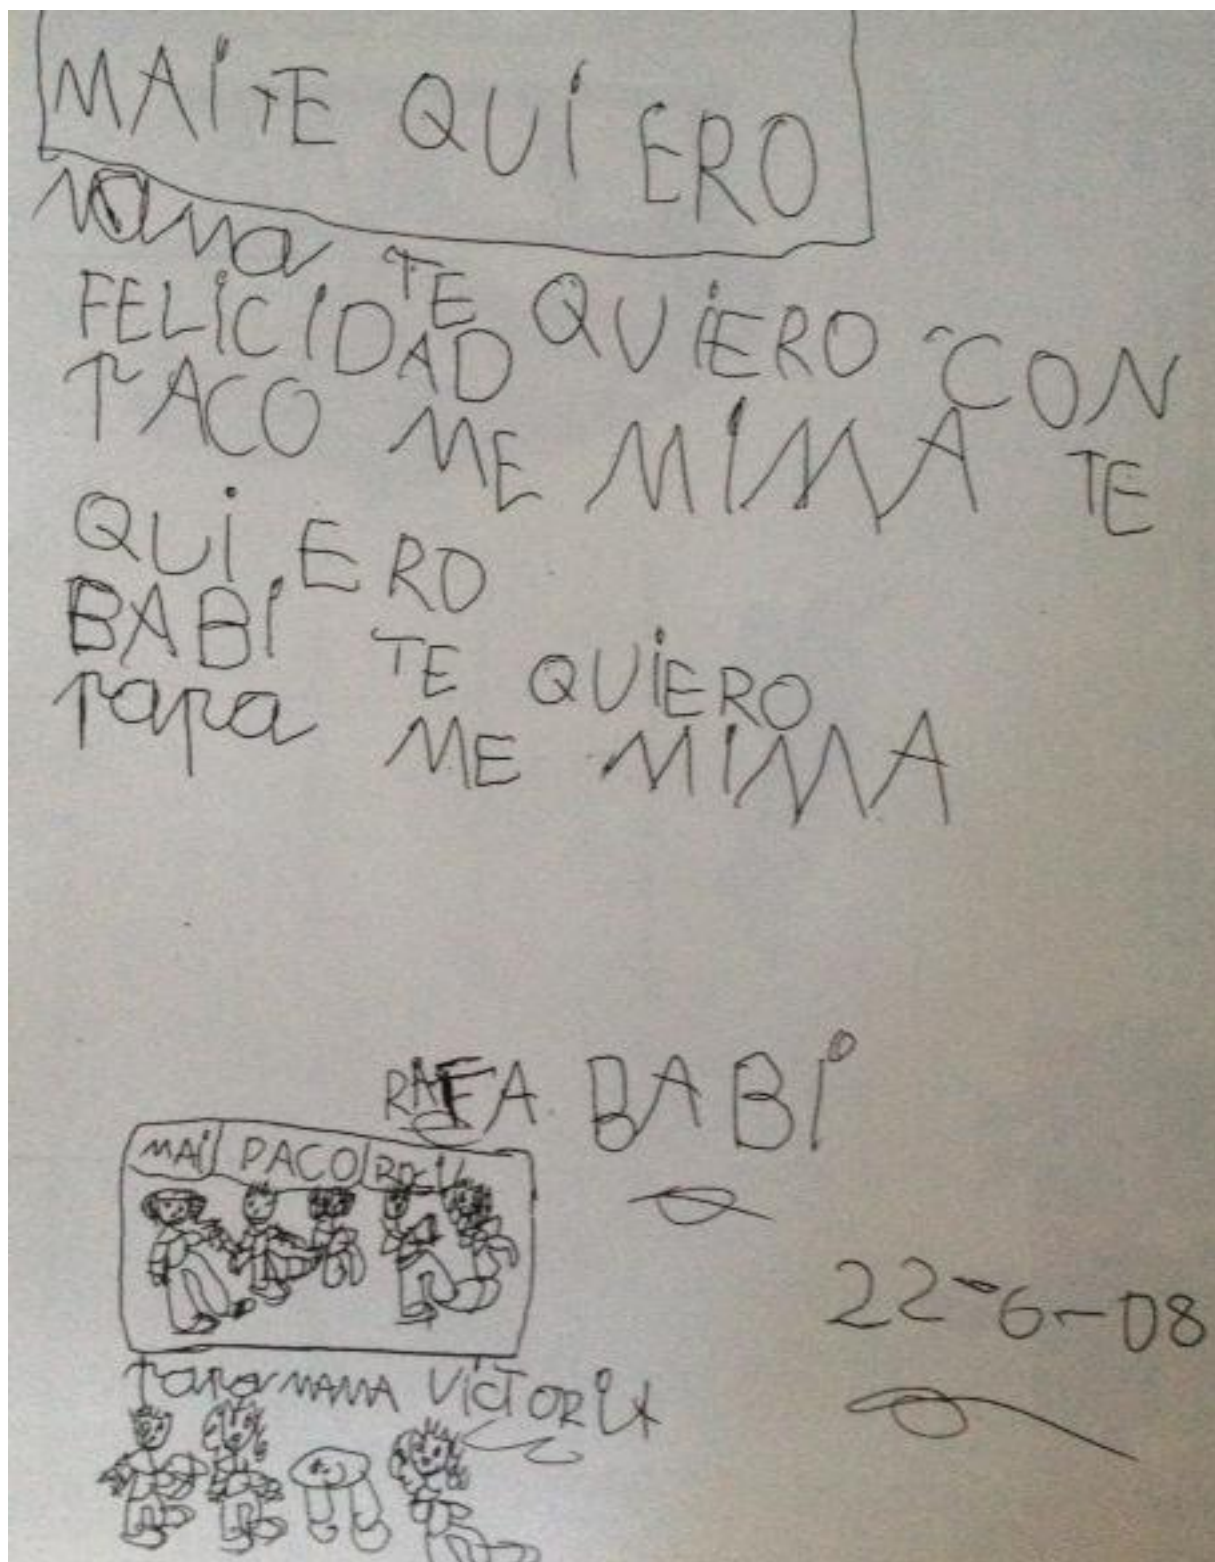 MAI TE QUIERO
mama TE QUIERO CON
FELICIDAD
PACO ME MIMA TE
QUIERO
BABI TE QUIERO
papa ME MIMA
RAFA BABI
MAI PACO
22-6-08
papa MAMA VICTORIA